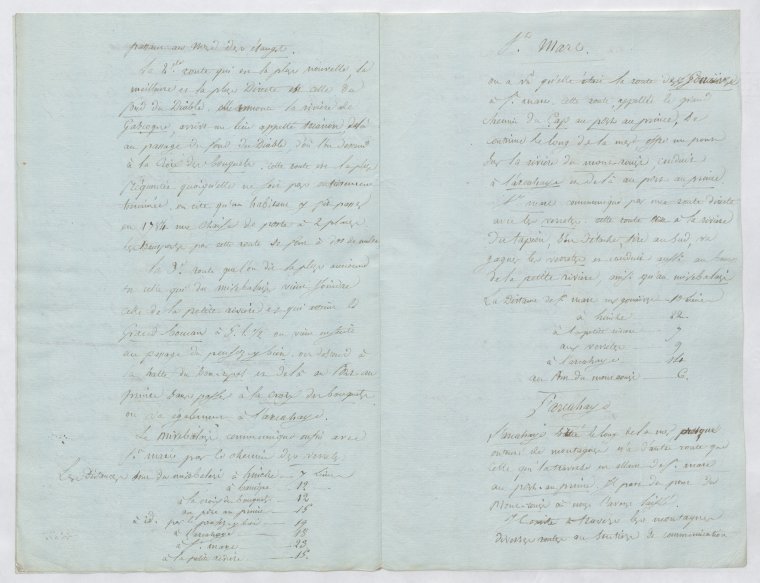 passant au Nord des étangs.
La 2.e route qui est la plus nouvelle, la
meilleure et la plus Directe est celle du
fond du Diable. elle remonte la rivière de
Gascogne, arrive au lieu appellé trianon, delà
au passage du fond du Diable d'où l'on descend
à la Croix des bouquets. cette route est la plus
fréquentée quoiqu'elle ne soit pas entièrement
terminée. on cite qu'un habitant y fit passer
en 1784 une Chaise de poste à 2 places
les transports par cette route se font à dos de mulets
la 3.e route que l'on dit la plus ancienne
est celle qui du mirebalais vient joindre
celle de la petite rivière et qui atteint le
Grand boucan à 5. l. 1/2 on vient ensuite
au passage du pensez y bien, on descend à
la hatte du et delà au Port au
prince sans passer à la croix des bouquets
ou également à l'arcahaye.
Le mirebalais communique aussi avec
S.t marc par le chemin des verrets
Les Distances sont du mirebalais à hinche — 7 lieues
à banique — 12
à la croix des bouquets — 12
au port au prince — 15
à id. par le pensez y bien — 19
à l'arcahaye — 18
à S.t marc — 23
à la petite rivière — 15
S.t Marc.
on a vu qu'elle était la route des Gonaïves
à S.t marc. cette route, appellée le grand
chemin du Cap au port au prince, se
continue le long de la mer, offre un pont
sur la rivière du mont rouis, conduit
à l'arcahaye et delà au port au prince
S.t marc communique par une route directe
avec les verrets. cette route va à la rivière
du tapion, s'en détache, tire au sud, va
gagner les verrets et conduit aussi au bac
de la petite rivière, ainsi qu'au mirebalais
La Distance de S.t marc aux gonaïves — lieues
à hinche — 22
à la petite rivière — 7
aux verrets — 9
à l'arcahaye — 14
au Pon du mont rouis — 6.
L'arcahaye
L'arcahaye située le long de la mer presque
entourée de montagnes n'a d'autre route que
celle qui la traverse en allant de S.t marc
au port au prince. Il part du pont du
Mont rouis à nous l'avons laissé.
à travers les montagnes
diverses routes ou sentiers de communication